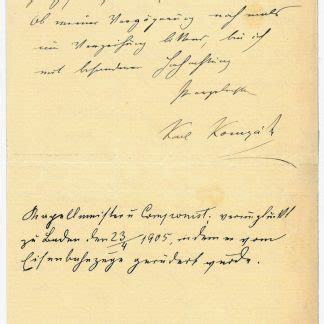 Ob meiner Verzögerung noch mals
um Verzeihung bittend, bin ich
mit besonderer Hochachtung
Karl Komzák
Kapellmeister u Componist, verunglückt
zu Baden den 23/4 1905, indem er vom
Eisenbahnzuge gerädert wurde.